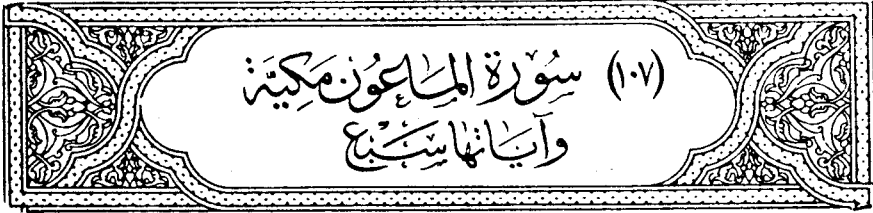 (١٠٧) سُورَة المَاعُون مَكِيَّة
وَآيَاتهَا سَبْع